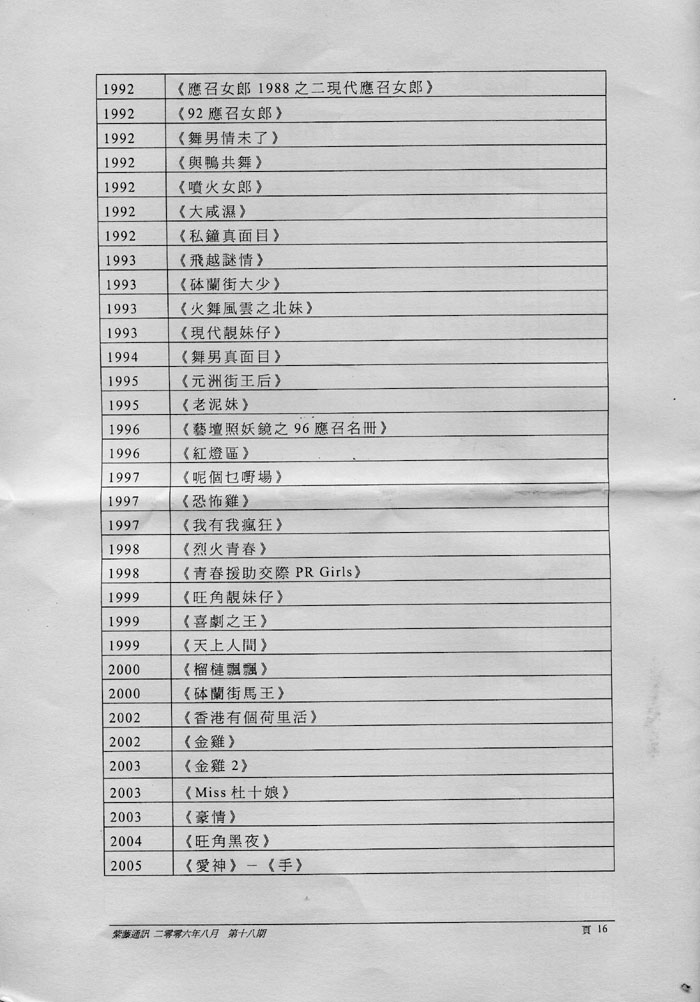 1992 《應召女郎 1988 之二現代應召女郎》
1992 《92 應召女郎》
1992 《舞男情未了》
1992 《與鴨共舞》
1992 《噴火女郎》
1992 《大咸濕》
1992 《私鐘真面目》
1993 《飛越謎情》
1993 《砵蘭街大少》
1993 《火舞風雲之北妹》
1993 《現代靚妹仔》
1994 《舞男真面目》
1995 《元洲街王后》
1995 《老泥妹》
1996 《藝壇照妖鏡之 96 應召名冊》
1996 《紅燈區》
1997 《呢個乜嘢場》
1997 《恐怖雞》
1997 《我有我瘋狂》
1998 《烈火青春》
1998 《青春援助交際 PR Girls》
1999 《旺角靚妹仔》
1999 《喜劇之王》
1999 《天上人間》
2000 《榴槤飄飄》
2000 《砵蘭街馬王》
2002 《香港有個荷里活》
2002 《金雞》
2003 《金雞 2》
2003 《Miss 杜十娘》
2003 《豪情》
2004 《旺角黑夜》
2005 《愛神》－《手》
紫藤通訊 二零零六年八月 第十八期 頁 16